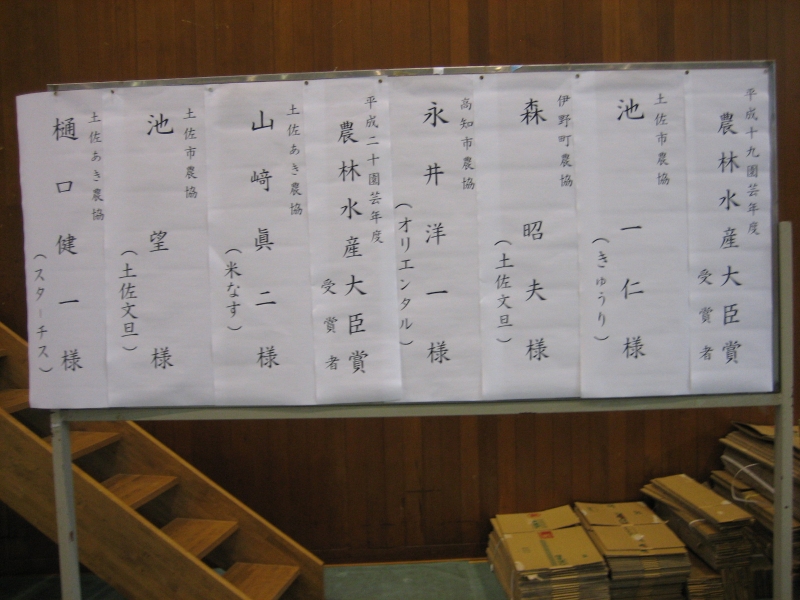 平成十九園芸年度
農林水産大臣賞
受賞者
土佐市農協
池 一仁 様
(きゅうり)
伊野町農協
森 昭夫 様
(土佐文旦)
高知市農協
永井洋一 様
(オリエンタル)
平成二十園芸年度
農林水産大臣賞
受賞者
土佐あき農協
山﨑眞二 様
(米なす)
土佐市農協
池 望 様
(土佐文旦)
土佐あき農協
樋口健一 様
(スターチス)